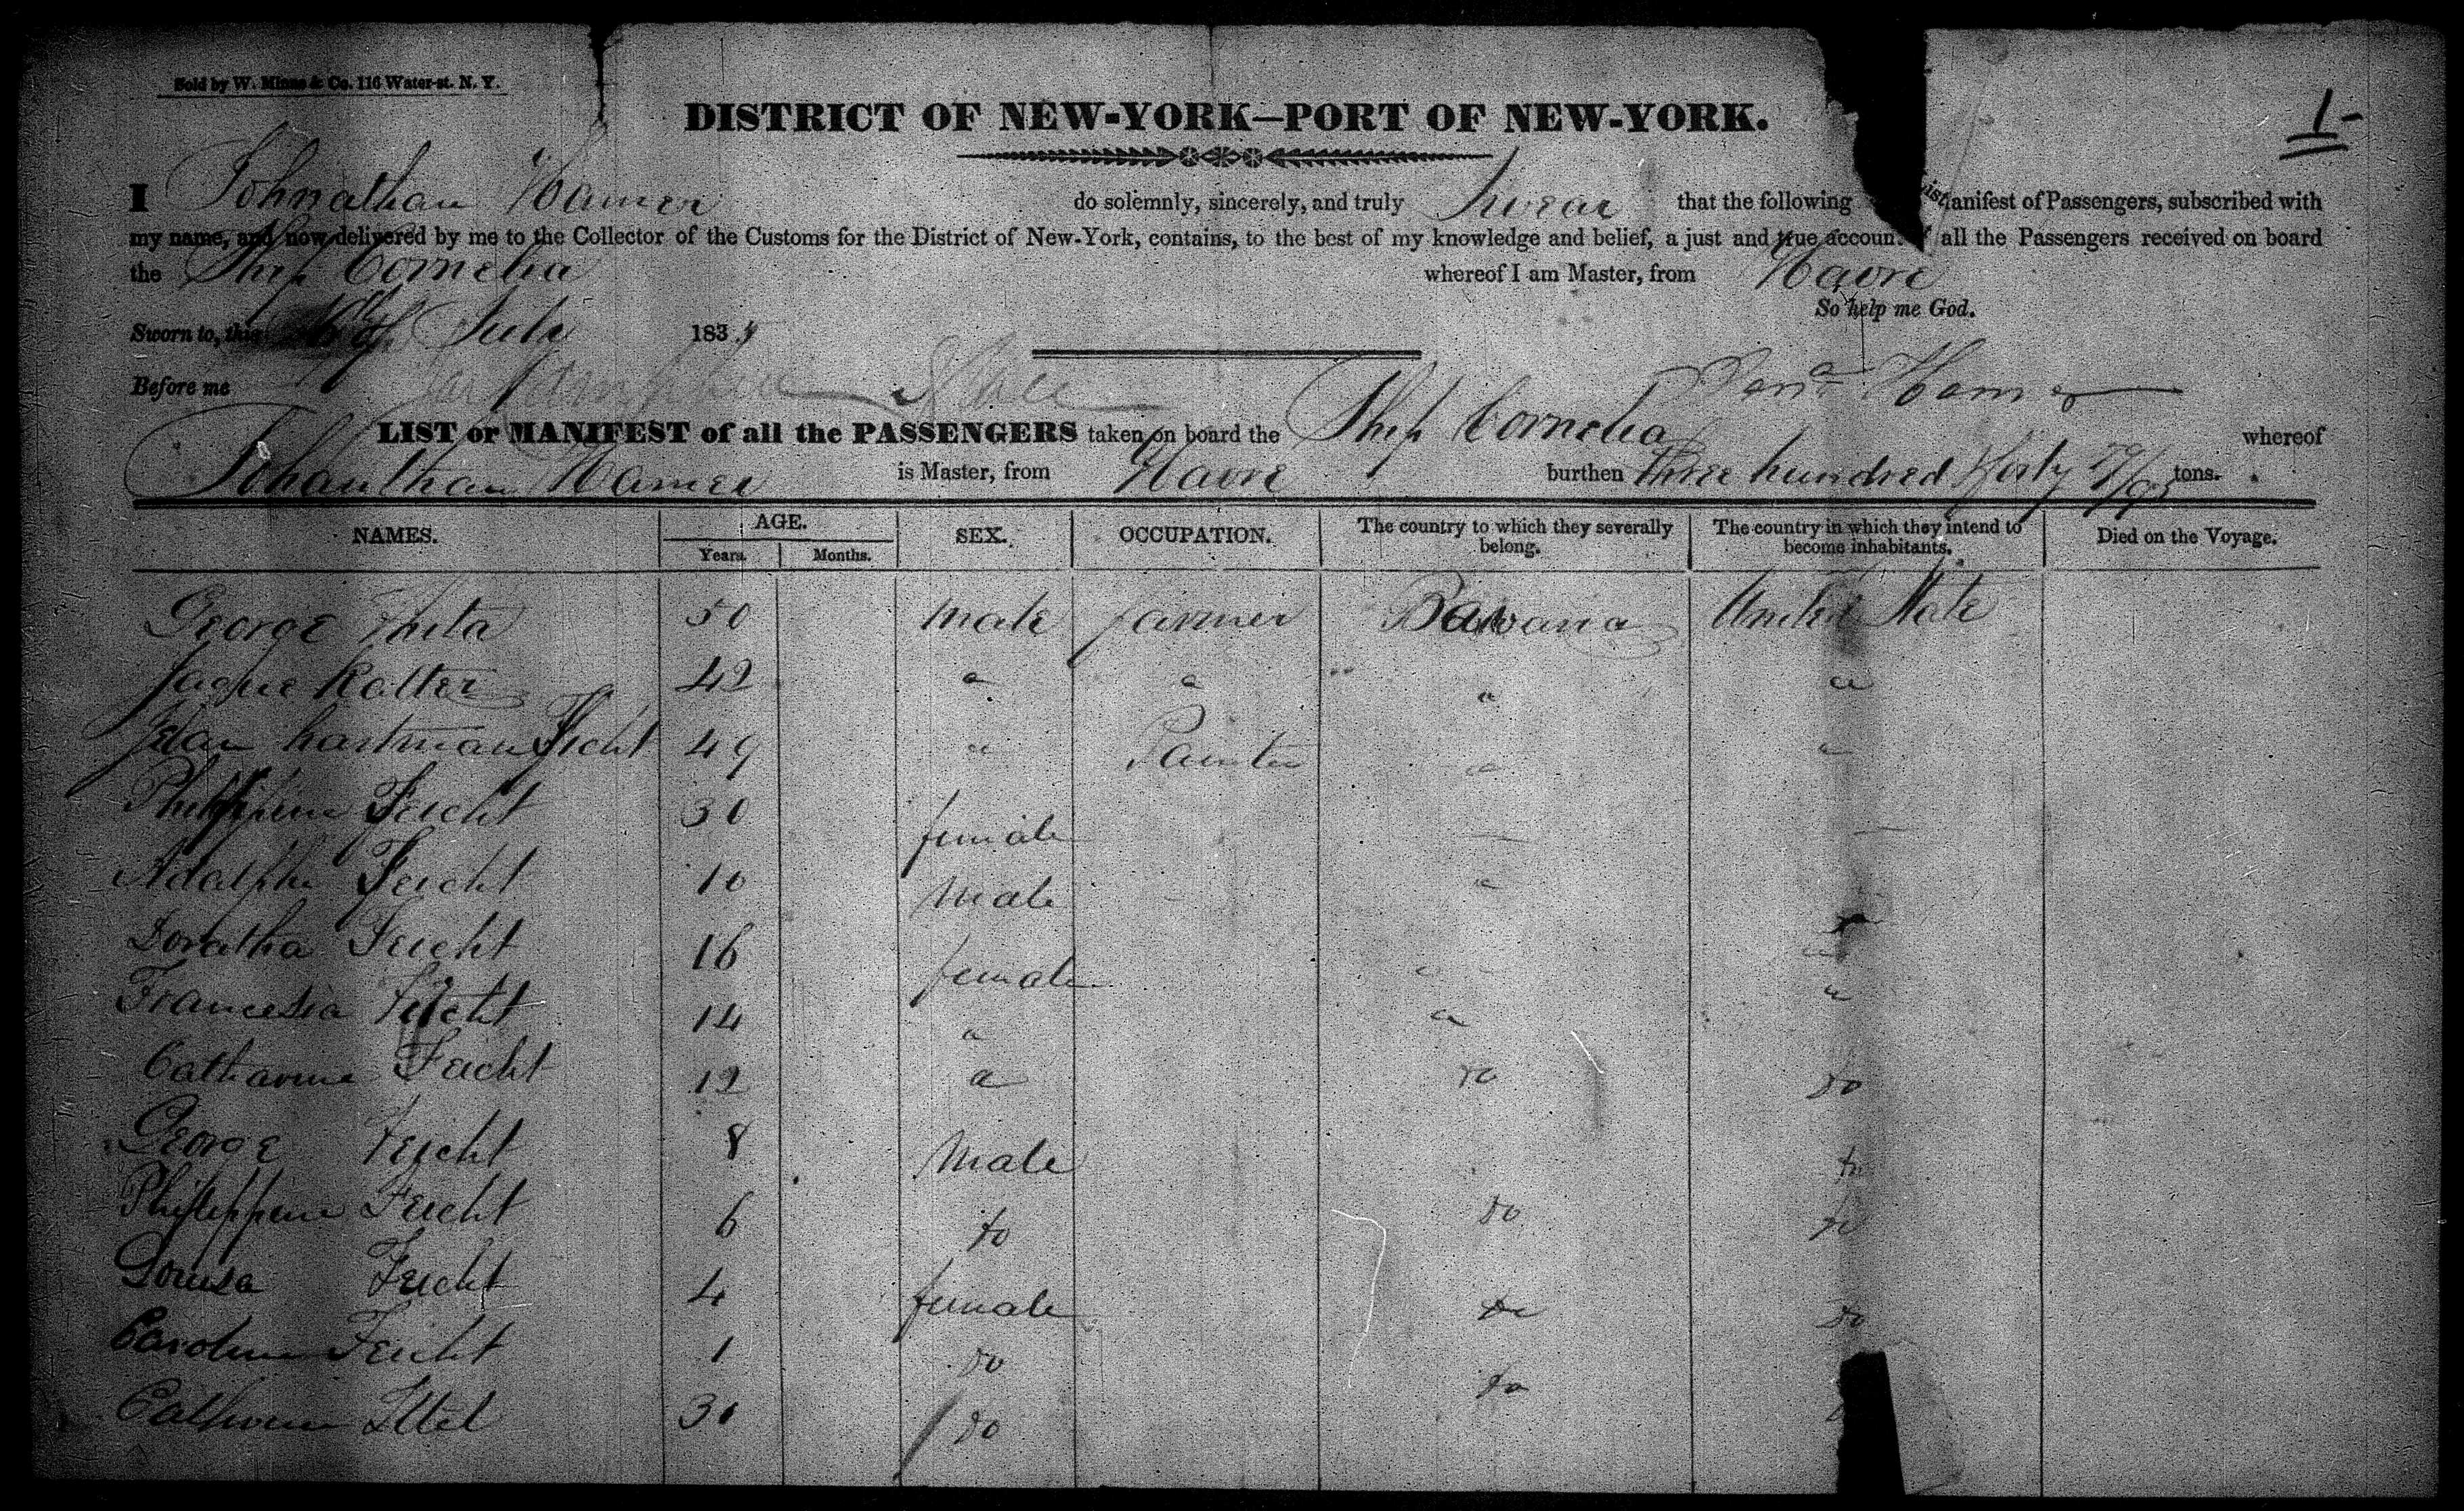 Sold by W. Minns & Co. 116 Water-st. N. Y.
DISTRICT OF NEW-YORK—PORT OF NEW-YORK.
1-
I Johnathan Hamer do solemnly, sincerely, and truly Swear that the following List Manifest of Passengers, subscribed with
my name, and now delivered by me to the Collector of the Customs for the District of New-York, contains, to the best of my knowledge and belief, a just and true account all the Passengers received on board
the Ship Cornelia whereof I am Master, from Havre
So help me God.
Sworn to, this July 183
Before me Hamer
LIST or MANIFEST of all the PASSENGERS taken on board the Ship Cornelia whereof
Johanthan Hamer is Master, from Havre burthen three hundred & forty tons.
NAMES. AGE. Years. Months. SEX. OCCUPATION. The country to which they severally belong. The country in which they intend to become inhabitants. Died on the Voyage.
George 50 male farmer Bavaria United State
Jaque 42 " " " "
Jean hartman Feicht 49 " Painter " "
Philippine Feicht 30 female
Adalphe Feicht 10 Male "
Doratha Feicht 16 female " "
Francesia Feicht 14 " " "
Catharine Feicht 12 " do do
George Feicht 8 Male do
Philippine Feicht 6 do do do
Louisa Feicht 4 female do do
Caroline Feicht 1 do do
Catharine Ittel 30 do